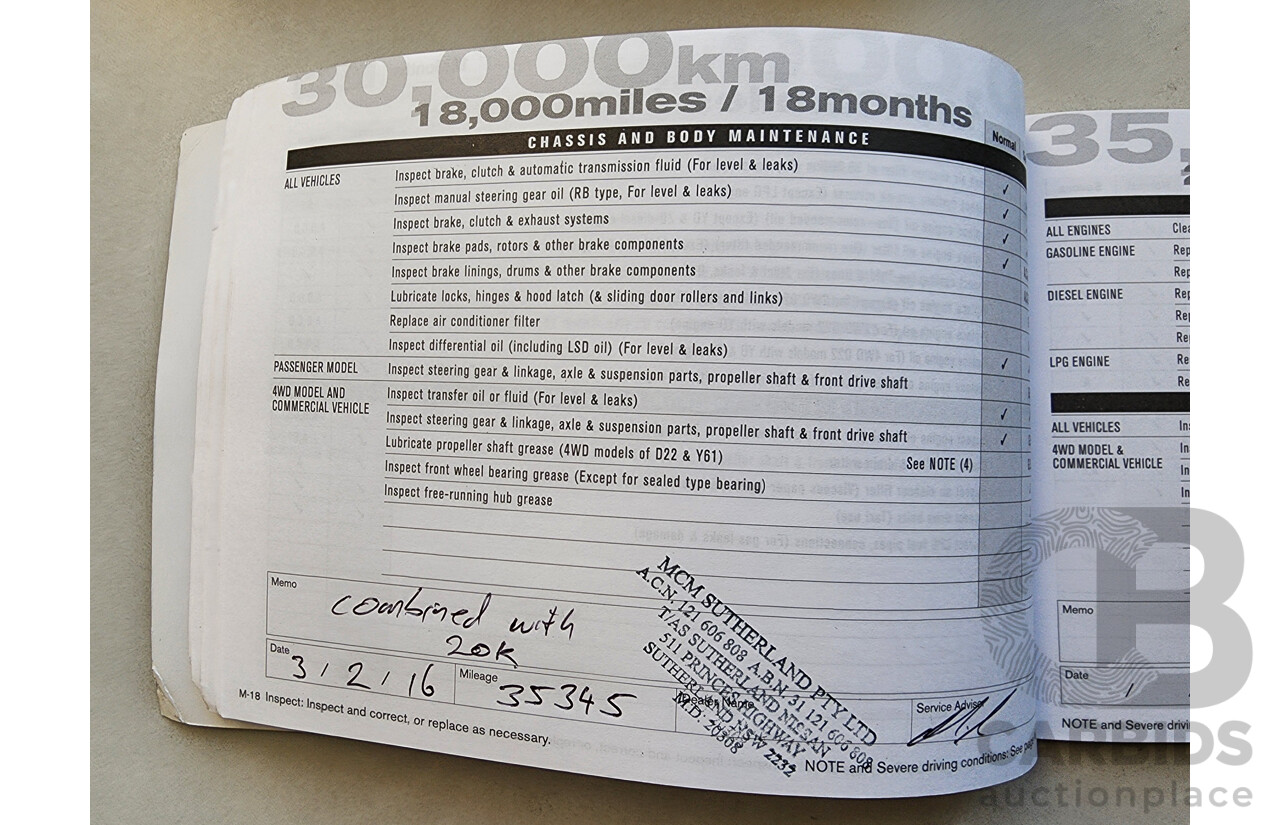 30,000km
18,000miles / 18months
CHASSIS AND BODY MAINTENANCE Normal
ALL VEHICLES Inspect brake, clutch & automatic transmission fluid (For level & leaks) ✓
Inspect manual steering gear oil (RB type, For level & leaks) ✓
Inspect brake, clutch & exhaust systems ✓
Inspect brake pads, rotors & other brake components ✓
Inspect brake linings, drums & other brake components
Lubricate locks, hinges & hood latch (& sliding door rollers and links)
Replace air conditioner filter
Inspect differential oil (including LSD oil) (For level & leaks) ✓
PASSENGER MODEL Inspect steering gear & linkage, axle & suspension parts, propeller shaft & front drive shaft
4WD MODEL AND COMMERCIAL VEHICLE Inspect transfer oil or fluid (For level & leaks) ✓
Inspect steering gear & linkage, axle & suspension parts, propeller shaft & front drive shaft ✓
Lubricate propeller shaft grease (4WD models of D22 & Y61) See NOTE (4)
Inspect front wheel bearing grease (Except for sealed type bearing)
Inspect free-running hub grease
Memo
combined with
20K
Date 3/2/16 Mileage 35345 Dealer Name Service Adviser
MCM SUTHERLAND PTY LTD
A.C.N. 121 606 808 A.B.N. 31 121 606 808
T/AS SUTHERLAND NISSAN
511 PRINCES HIGHWAY
SUTHERLAND NSW 2232
M.D. 20308
M-18 Inspect: Inspect and correct, or replace as necessary. NOTE and Severe driving conditions: See
35,
ALL ENGINES
GASOLINE ENGINE
DIESEL ENGINE
LPG ENGINE
ALL VEHICLES
4WD MODEL &
COMMERCIAL VEHICLE
Memo
Date / 
NOTE and Severe
CARBIDS
auctionplace